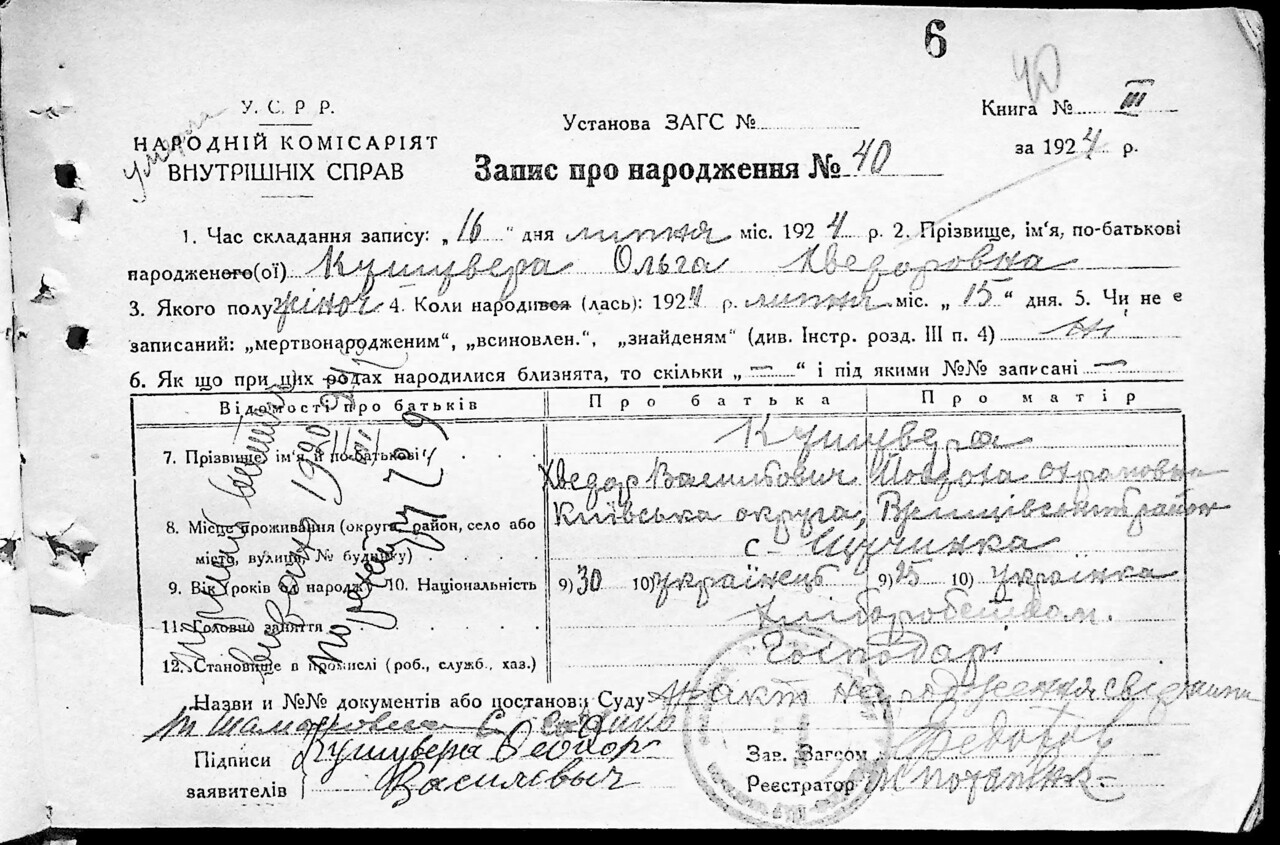 6
40
У. С. Р. Р.
НАРОДНІЙ КОМІСАРІЯТ
ВНУТРІШНІХ СПРАВ
умерла
Установа ЗАГС №
Запис про народження № 40
Книга № III
за 1924 р.
1. Час складання запису: „16“ дня липня міс. 1924 р. 2. Прізвище, ім'я, по-батькові
народженого(ої) Кушувера Ольга Хведоровна
3. Якого полу жіноч 4. Коли народився (лась): 1924 р. липня міс. „15“ дня. 5. Чи не є
записаний: „мертвонародженим“, „всиновлен.“, „знайденям“ (див. Інстр. розд. III п. 4) Ні
6. Як що при цих родах народилися близнята, то скільки „—“ і під якими №№ записані —
Відомості про батьків Про батька Про матір
7. Прізвище, ім'я, й по-батькові Кушувера
Хведор Василбович
8. Місце проживання (округа, район, село або Київська округа, район
місто, вулиця, № будинку) с. Щучинка
9. Вік (років од народж.) 10. Національність 9) 30 10) українець 9) 25 10) українка
11. Головне заняття Хліборобством.
12. Становище в промислі (роб., служб., хаз.) Господарі
Назви и №№ документів або постанови Суду Факт народження
Підписи Кушувера Феодор
заявителів Василевыч
Зав. Загсом Федотов
Реєстратор